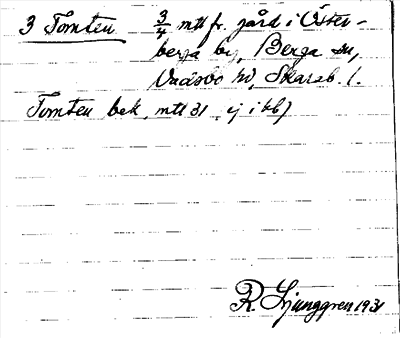 3 Tomten 3/4 mtl fr. gård i Öster-
berga by, Berga sn,
Vadsbo hd, Skarab. l.
Tomten bek, mtl 31, ej i kb)
R. Ljunggren 1931